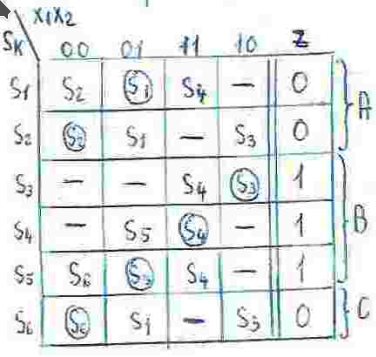 X1X2
SK 00 01 11 10 Z
S1 S2 S1 S4 — 0
S2 S2 S1 — S3 0
A
S3 — — S4 S3 1
S4 — S5 S4 — 1
B
S5 S6 S5 S4 — 1
S6 S6 S1 — S3 0
C